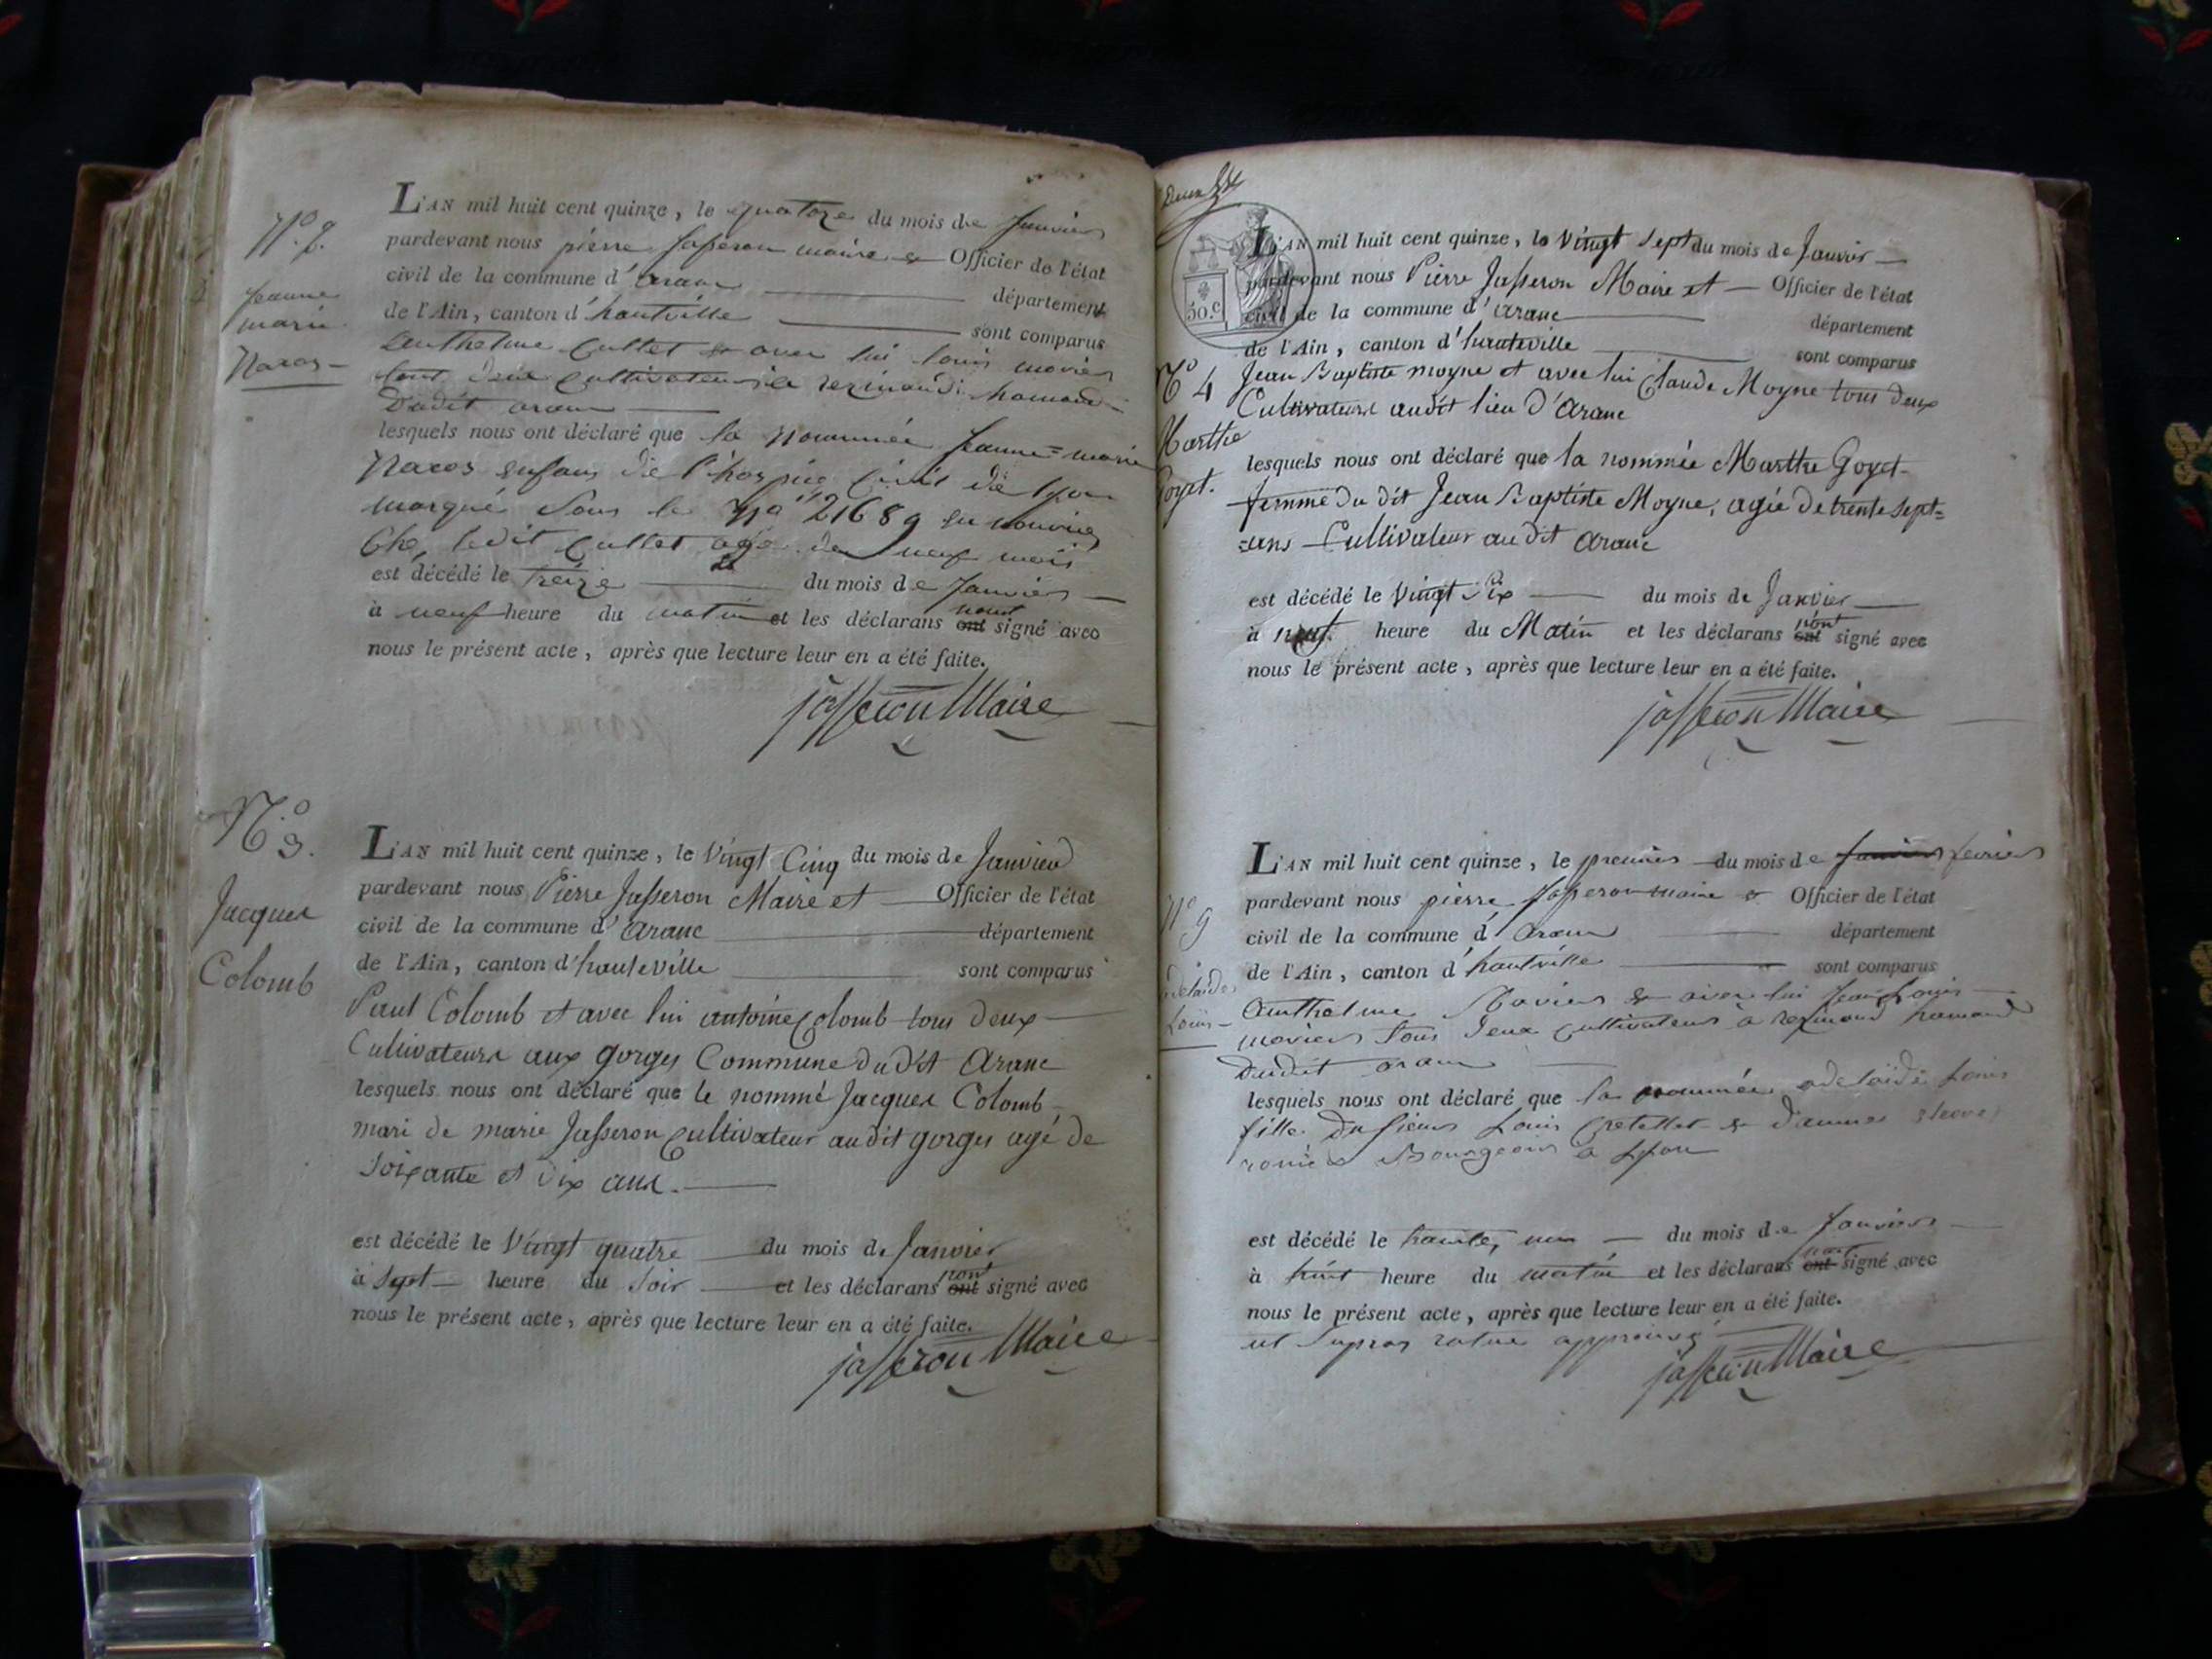 N.o 2.
Jeanne
marie
Naros
L'AN mil huit cent quinze, le quatoze du mois de Janvier
pardevant nous pierre Jasseron maire & Officier de l'état
civil de la commune d'aranc département
de l'Ain, canton d'hautville sont comparus
anthelme Cullet & avec lui louis moviés
tout deux Cultivateurs a rezinand hamand
dudit aranc
lesquels nous ont déclaré que la nommée Jeanne=marie
Naros enfans de l'hospice Civil de lyon
marqué sous le No 21689 en nourice
Ché ledit Cullet agé de neuf mois
est décédé le treize du mois de Janvier
à neuf heure du matin et les déclarans ont nont signé avec
nous le présent acte, après que lecture leur en a été faite.
jasseron Maire
N.o 3.
Jacques
Colomb
L'AN mil huit cent quinze, le Vingt Cinq du mois de Janvier
pardevant nous Pierre Jasseron Maire et Officier de l'état
civil de la commune d'aranc département
de l'Ain, canton d'hauteville sont comparus
Paul Colomb et avec lui antoine Colomb tous deux
Cultivateurs aux gorges Commune dudit Aranc
lesquels nous ont déclaré que le nommé Jacques Colomb
mari de marie Jasseron Cultivateur audit gorges agé de
soixante et dix ans.
est décédé le Vingt quatre du mois de Janvier
à sept heure du soir et les déclarans ont nont signé avec
nous le présent acte, après que lecture leur en a été faite.
jasseron Maire
50.c
N.o 4
Marthe
Goyet.
L'AN mil huit cent quinze, le Vingt sept du mois de Janvier
pardevant nous Pierre Jasseron Maire et Officier de l'état
civil de la commune d'aranc département
de l'Ain, canton d'hauteville sont comparus
Jean Baptiste moyne et avec lui Claude Moyne tous deux
Cultivateurs audit lieu d'Aranc
lesquels nous ont déclaré que la nommée Marthe Goyet
femme du dit Jean Baptiste Moyne, agée de trente sept=
=ans Cultivateur audit aranc
est décédé le Vingt Six du mois de Janvier
à neuf heure du Matin et les déclarans ont nont signé avec
nous le présent acte, après que lecture leur en a été faite.
jasseron Maire
delaide
Louis
L'AN mil huit cent quinze, le premier du mois de Janvier fevrier
pardevant nous pierre Jasseron maire & Officier de l'état
civil de la commune d'aranc département
de l'Ain, canton d'hautville sont comparus
Anthelme Moviers & avec lui Jean Louis
moviers tous deux Cultivateurs à rezinand hamand
dudit aranc
lesquels nous ont déclaré que la nommée adelaide Louis
fille du sieur Louis & d'annne
Bourgeois a Lyon
est décédé le trante, un du mois de Janvier
à huit heure du matin et les déclarans ont nont signé avec
nous le présent acte, après que lecture leur en a été faite.
ut supras rature approuvé
jasseron Maire